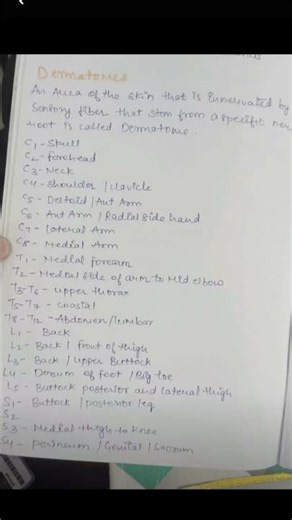 Dermatomes
An Area of the Skin that is Innervated by
Sensory fiber that stem from a specific
root is called Dermatome.
C1 - Skull
C2 - forehead
C3 - Neck
C4 - Shoulder / Clavicle
C5 - Deltoid / Ant Arm
C6 - Ant Arm / Radial side hand
C7 - Lateral Arm
C8 - Medial Arm
T1 - Medial forearm
T2 - Medial side of arm to Mid elbow
T3-T6 - upper thorax
T5-T7 - coastal
T8-T12 - Abdomen / lumbar
L1 - Back
L2 - Back / front of thigh
L3 - Back / upper Buttock
L4 - Dorsum of foot / Big toe
L5 - Buttock posterior and lateral thigh
S1 - Buttock / posterior leg
S2
S3 - Medial thigh to knee
S4 - perineum / Genital / Sacrum